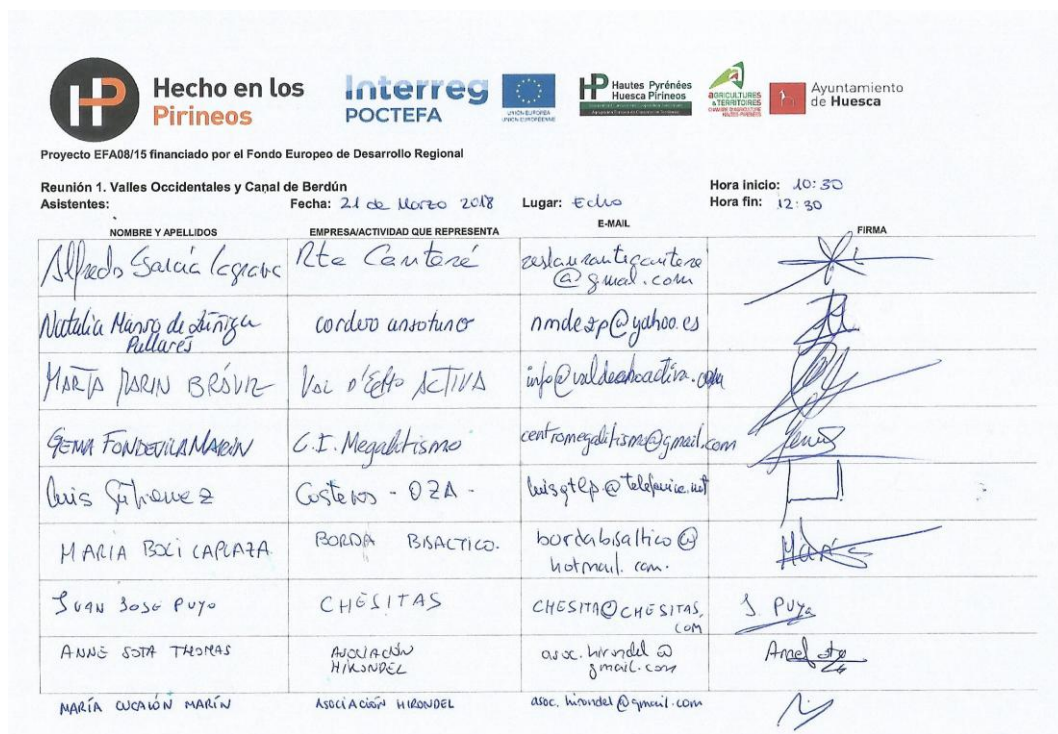 HP Hecho en los
Pirineos
Interreg
POCTEFA
UNIÓN EUROPEA
UNION EUROPÉENNE
HP Hautes Pyrénées
Huesca Pirineos
AGRICULTURES
& TERRITOIRES
CHAMBRE D'AGRICULTURE
HAUTES-PYRÉNÉES
Ayuntamiento
de Huesca
Proyecto EFA08/15 financiado por el Fondo Europeo de Desarrollo Regional
Reunión 1. Valles Occidentales y Canal de Berdún Hora inicio: 10:30
Asistentes: Fecha: 21 de Marzo 2018 Lugar: Echo Hora fin: 12:30
NOMBRE Y APELLIDOS EMPRESA/ACTIVIDAD QUE REPRESENTA E-MAIL FIRMA
Alfredo García Rte Canteré restaurantegantere
@gmail.com
Natalia Manso de Zúñiga cordero ansotano nmdezp@yahoo.es
Pullarés
MARTA MARIN BRÁVIZ VAL D'ECHO ACTIVA info@valdeechoactiva.com
GEMA FONDEVILA MARÍN C.I. Megalitismo centromegalitismo@gmail.com
Luis Gutierrez - OZA - luisgtlp@telefonica.net
MARIA BORDA BISALTICO. bordabisaltico@
hotmail.com. María
JUAN JOSE PUYO CHESITAS CHESITA@CHESITAS. J. Puyo
COM
ANNE SOTA THOMAS ASOCIACIÓN asoc.hirondel@
HIRONDEL gmail.com
MARÍA CUCALÓN MARÍN ASOCIACIÓN HIRONDEL asoc.hirondel@gmail.com